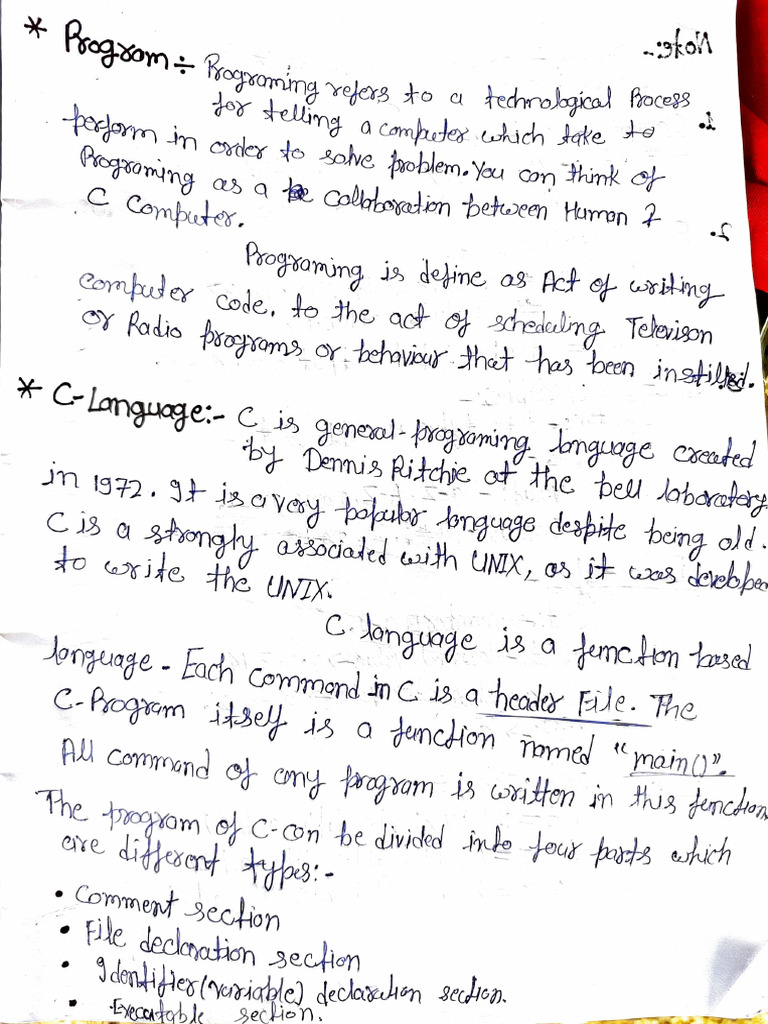 * Program ÷ Programing refers to a technological Process
for telling a computer which take to
perform in order to solve problem. You can think of
Programing as a collaboration between Human &
C Computer.
Programing is define as Act of writing
computer code. to the act of scheduling Televison
or Radio programs or behaviour that has been instilled.
* C-Language:- C is general-programing language created
by Dennis Ritchie at the bell laboratory
in 1972. It is a very popular language despite being old.
C is a strongly associated with UNIX, as it was developed
to write the UNIX.
C language is a function based
language - Each command in C is a header File. The
C-Program itself is a function named "main()".
All command of any program is written in this function
The program of C-can be divided into four parts which
are different types:-
• Comment section
• File declaration section
• Identifier(variable) declaration section.
• Executable section.
Note:-
1.
2.